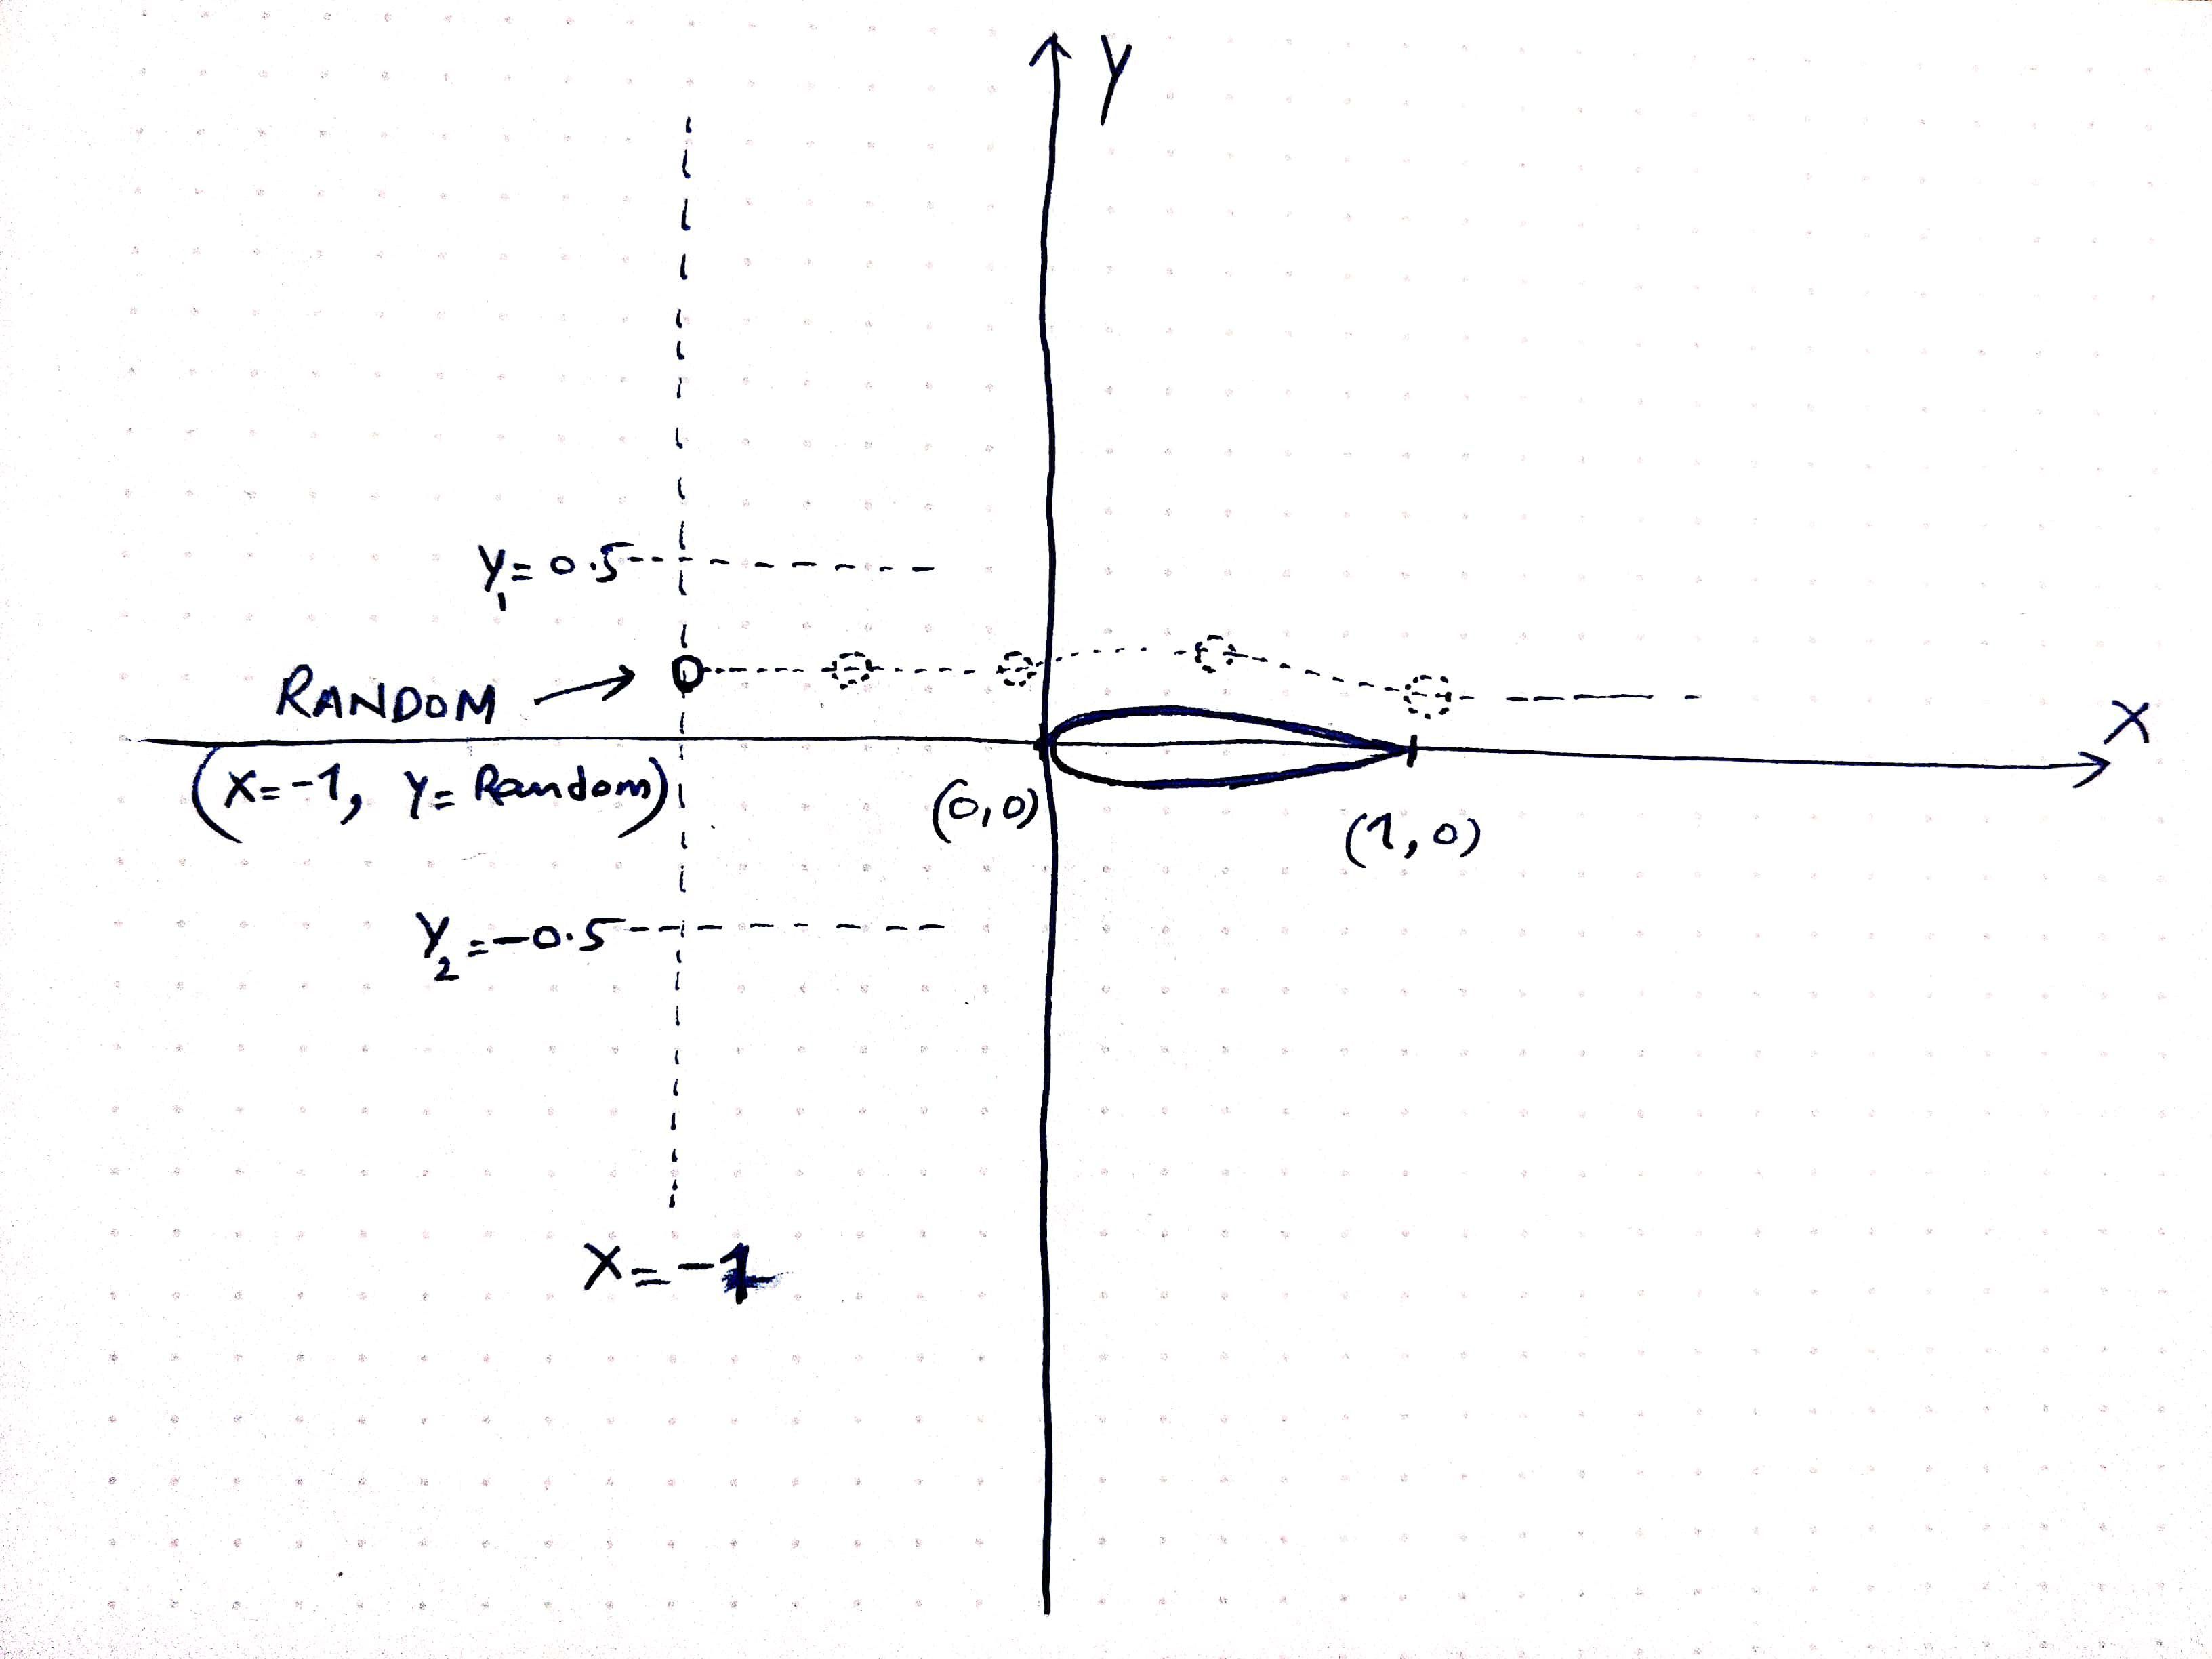 Y
Y₁=0.5
RANDOM
X
(X=-1, Y=Random)
(0,0)
(1,0)
Y₂=-0.5
X=-1